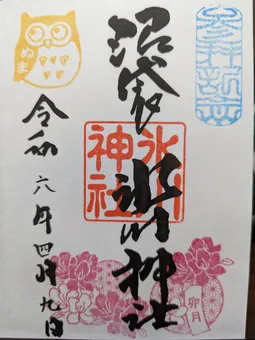 沼袋
氷川神社
氷川
神社
ぬま
令和六年四月九日
卯月